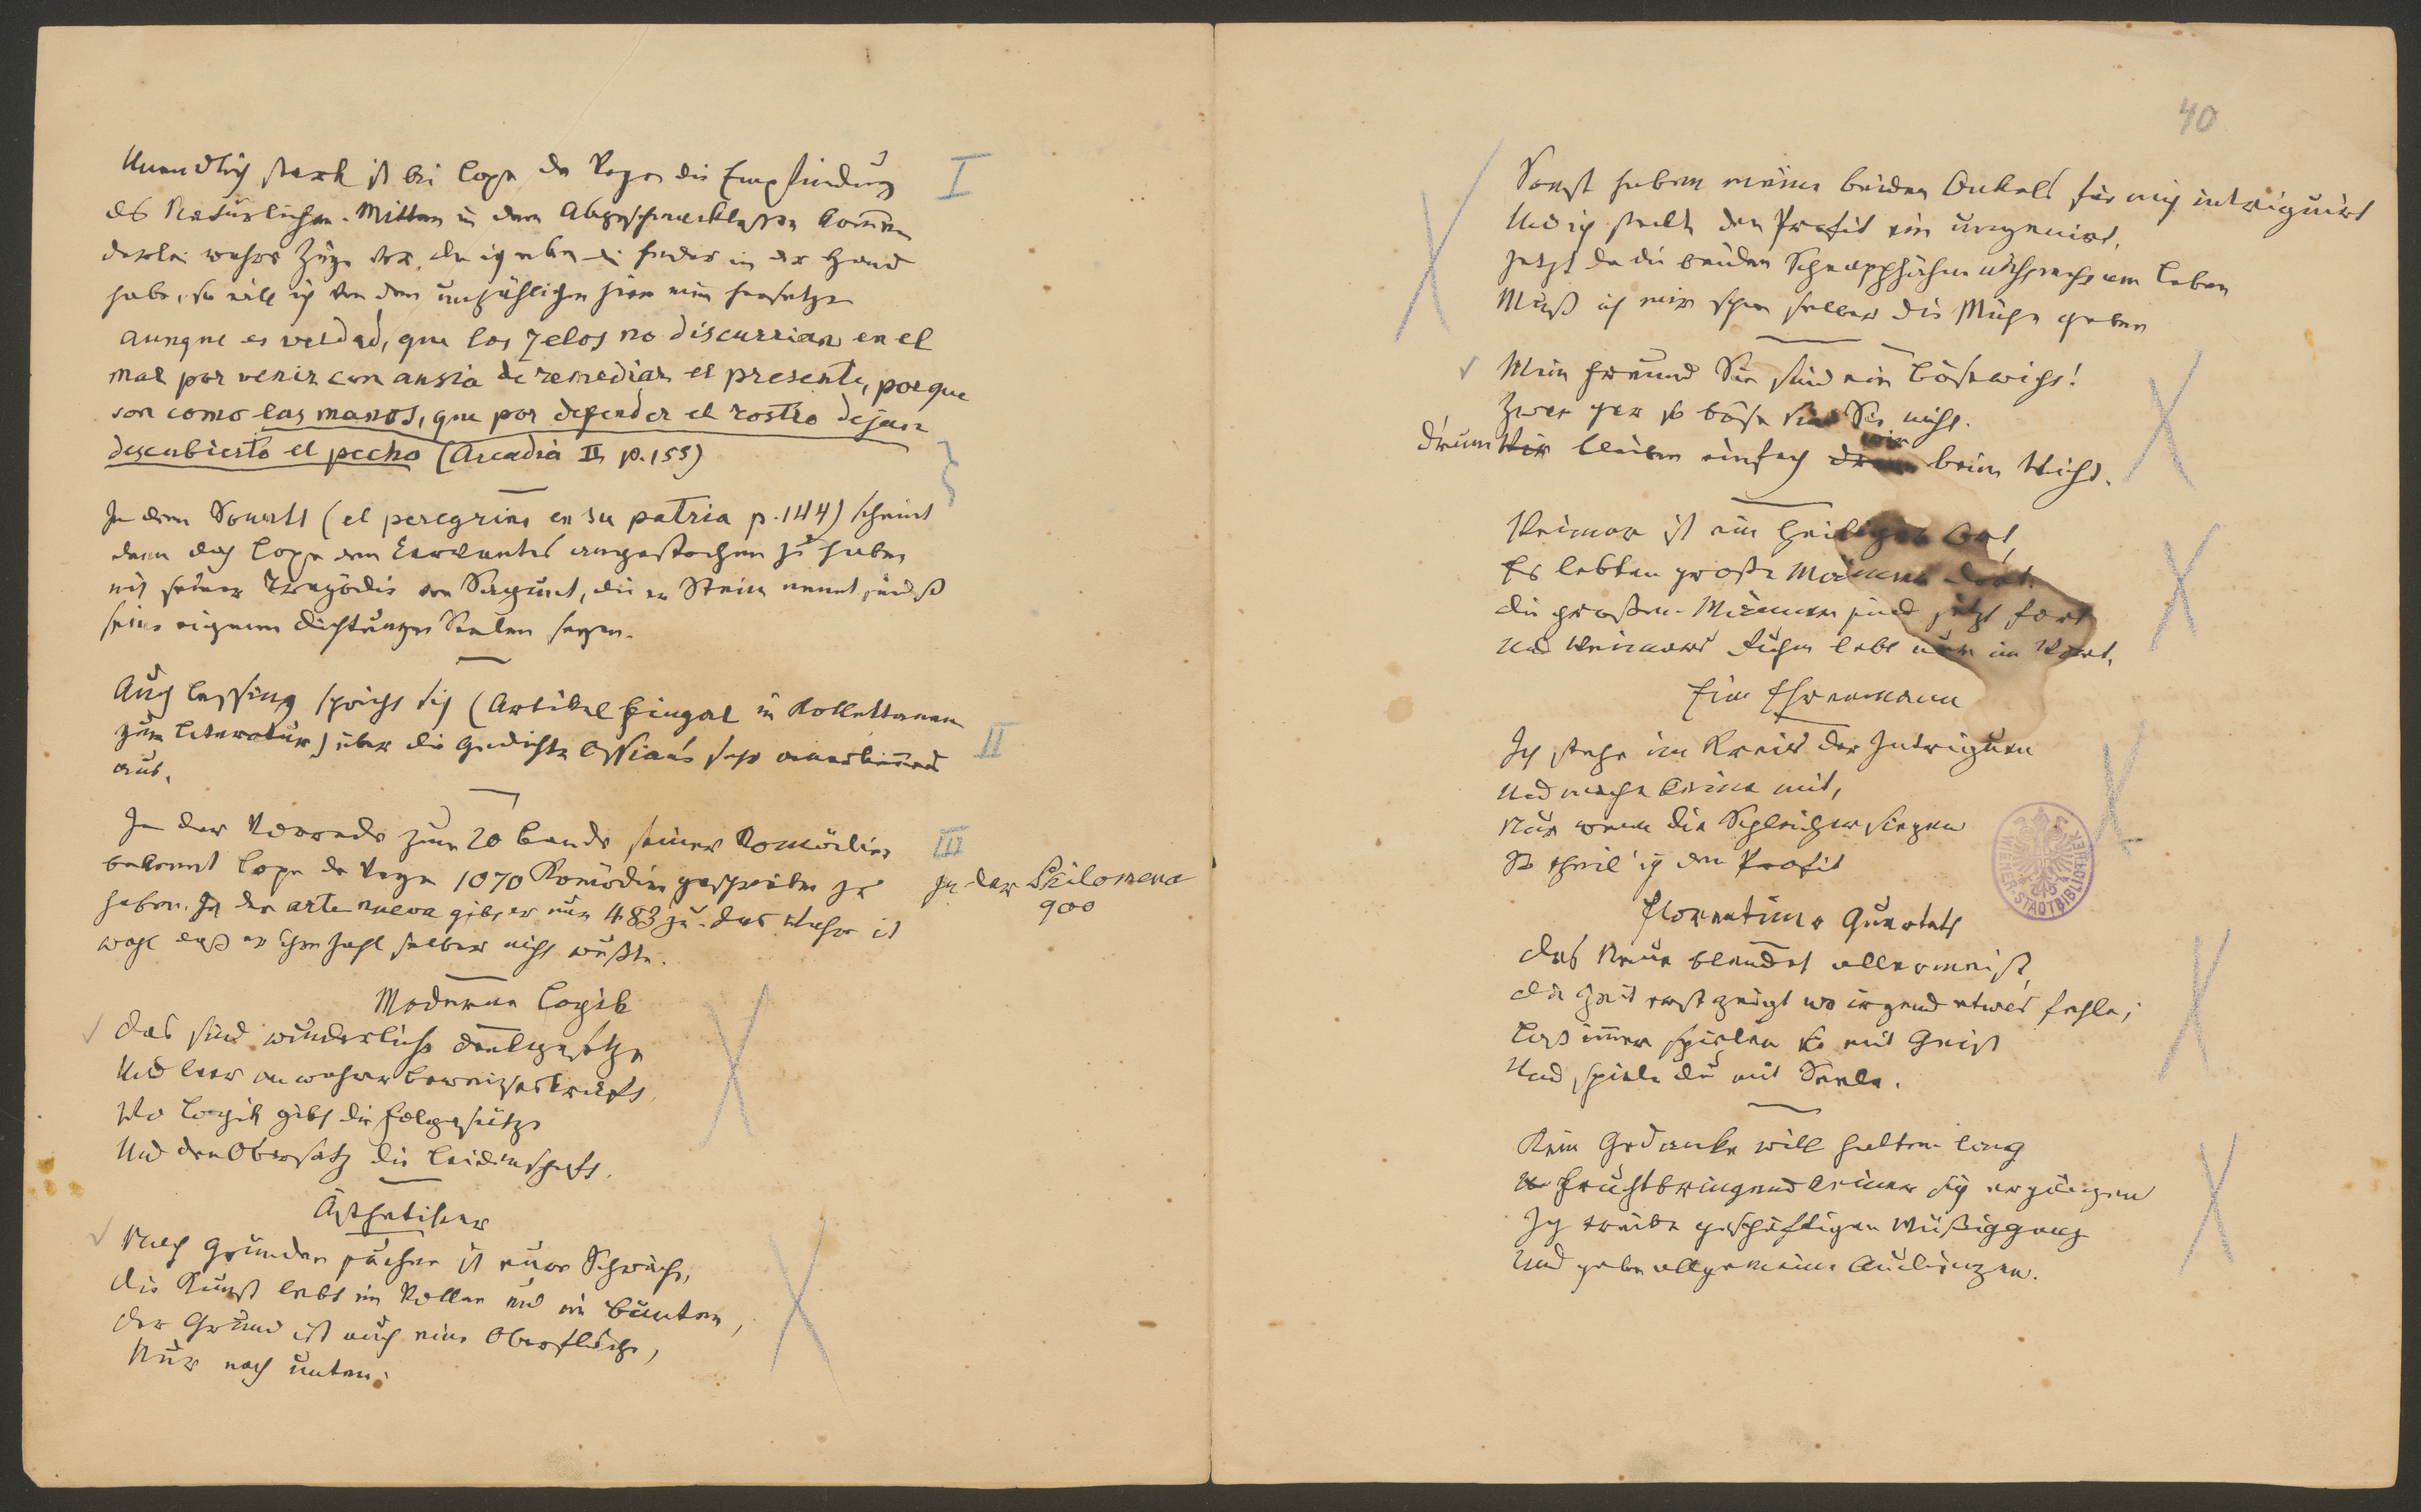 Unendlich stark ist bei Lope de Vega die Empfindung
des Natürlichen. Mitten in dem Abgeschmacktesten kommen
derlei wahre Züge vor. Da ich eben die Feder in der Hand
habe, so will ich von den unzähligen hier einen hersetzen
aunque es verdad, que los zelos no discurrian en el
mal por venir con ansia de remediar el presente, porque
son como las manos, que por defender el rostro dejan
descubierto el pecho (Arcadia II p. 155)
I
In dem Sonett (el peregrino en su patria p. 144) scheint
denn doch Lope den Cervantes angestochen zu haben
mit seiner Tragödie von Sagunt, die er Stein nennt, indeß
seine eigenen Dichtungen Seelen seyen.
Auch Lessing spricht sich (Artikel Fingal in Kollektaneen
zur Literatur) über die Gedichte Ossian's sehr anerkennend
aus.
II
In der Vorrede zum 20 Bande seiner Komödien
bekennt Lope de Vega 1070 Komödien geschrieben zu
haben. In der arte nueva gibt er nur 483 zu. Das Wahre ist
wohl daß er ihre Zahl selber nicht wußte.
III
In der Filomena
900
Moderne Logik
Das sind wunderliche Denkgesetze
Und leer an wahrer Beweiseskraft,
Wo Logik gibt die Folgesätze
Und den Obersatz die Leidenschaft.
Ästhetiker
Nach Gründen suchen ist eure Schwäche,
Die Kunst lebt im Vollen und im Bunten,
Der Grund ist auch eine Oberfläche,
Nur nach unten.
40
Sonst haben meine beiden Onkels für mich intriguirt
Und ich steckte den Profit ein ungenirt,
Jetzt da die beiden Schnapphähne nicht mehr am Leben
Muß ich mir schon selber die Mühe geben
Mein Freund Sie sind ein Bösewicht!
Zwar gar so böse sind Sie nicht.
Drum Wir bleiben einfach wir beim Wicht.
Weimar ist ein heiliger Ort,
Es lebten große Männer dort.
Die großen Männer sind jetzt fort
Und Weimars Ruhm lebt nur im Wort.
Ein Ehrenmann
Ich stehe im Kreis der Intriguen
Und mache keine mit,
Nur wenn die Schleicher siegen
So theil' ich den Profit
WIENER STADTBIBLIOTHEK
Florentiner Quartett
Das Neue blendet allermeist,
Die Zeit erst zeigt wo irgend etwas fehle;
Laß immer spielen sie mit Geist
Und spiele du mit Seele.
Kein Gedanke will halten lang
Fruchtbringend keiner sich ergänzen
Ich treibe geschäftigen Müßiggang
Und gebe allgemeine Audienzen.